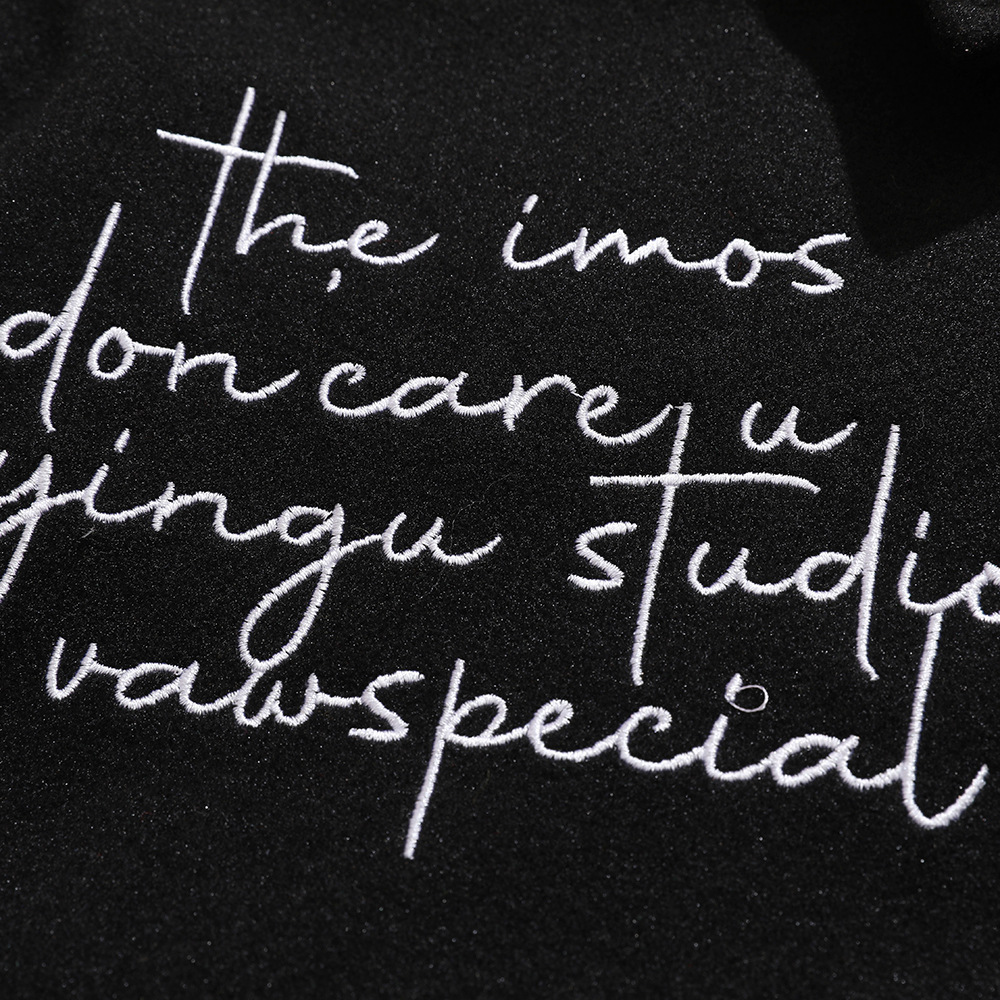 the imos
don care u
yingu studio
vawspecial